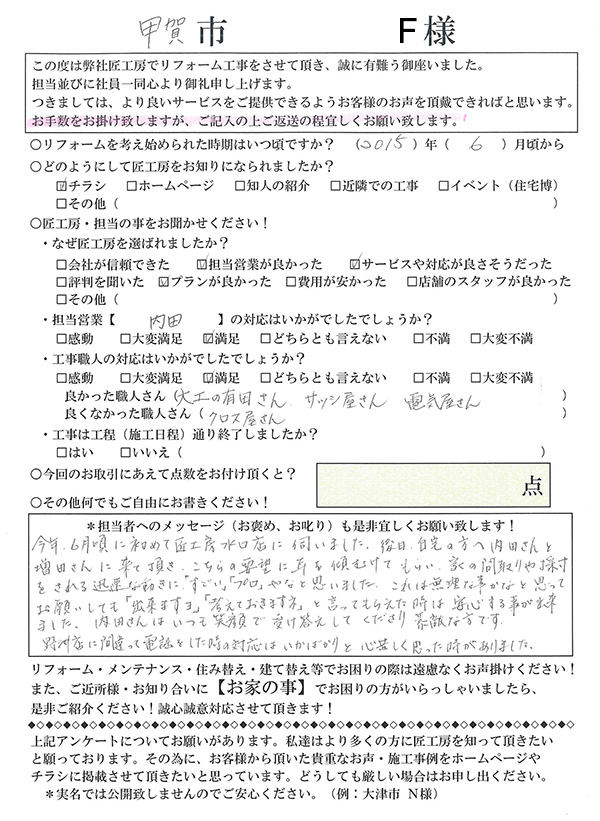 甲賀 市 F 様
この度は弊社匠工房でリフォーム工事をさせて頂き、誠に有難う御座いました。
担当並びに社員一同心より御礼申し上げます。
つきましては、より良いサービスをご提供できるようお客様のお声を頂戴できればと思います。
お手数をお掛け致しますが、ご記入の上ご返送の程宜しくお願い致します。
○リフォームを考え始められた時期はいつ頃ですか？ （2015）年（ 6 ）月頃から
○どのようにして匠工房をお知りになられましたか？
☑チラシ □ホームページ □知人の紹介 □近隣での工事 □イベント（住宅博）
□その他（ ）
○匠工房・担当の事をお聞かせください！
・なぜ匠工房を選ばれましたか？
□会社が信頼できた ☑担当営業が良かった ☑サービスや対応が良さそうだった
□評判を聞いた ☑プランが良かった □費用が安かった □店舗のスタッフが良かった
□その他（ ）
・担当営業【 内田 】の対応はいかがでしたでしょうか？
□感動 □大変満足 ☑満足 □どちらとも言えない □不満 □大変不満
・工事職人の対応はいかがでしたでしょうか？
□感動 □大変満足 ☑満足 □どちらとも言えない □不満 □大変不満
良かった職人さん（大工の有田さん、サッシ屋さん 電気屋さん ）
良くなかった職人さん（クロス屋さん ）
・工事は工程（施工日程）通り終了しましたか？
□はい □いいえ（ ）
○今回のお取引にあえて点数をお付け頂くと？
点
○その他何でもご自由にお書きください！
＊担当者へのメッセージ（お褒め、お叱り）も是非宜しくお願い致します！
今年、6月頃に初めて匠工房水口店に伺いました。後日、自宅の方へ内田さんと
増田さんに来て頂き、こちらの要望に耳を傾むけてもらい、家の間取りや採寸
をされる迅速な動きに「すごい」「プロ」やなと思いました。これは無理な事かなと思って
お願いしても「出来ますョ」「考えておきます」と言ってもらえた時は安心する事が出来
ました。内田さんはいつも笑顔で受け答えしてくださり素敵な方です。
野洲店に間違って電話をした時の対応はいかばかりと心苦しく思った時がありました。
リフォーム・メンテナンス・住み替え・建て替え等でお困りの際は遠慮なくお声掛けください！
また、ご近所様・お知り合いに【お家の事】でお困りの方がいらっしゃいましたら、
是非ご紹介ください！誠心誠意対応させて頂きます！
上記アンケートについてお願いがあります。私達はより多くの方に匠工房を知って頂きたい
と願っております。その為に、お客様から頂いた貴重なお声・施工事例をホームページや
チラシに掲載させて頂きたいと思っています。どうしても厳しい場合はお申し出ください。
＊実名では公開致しませんのでご安心ください。（例：大津市 N様）